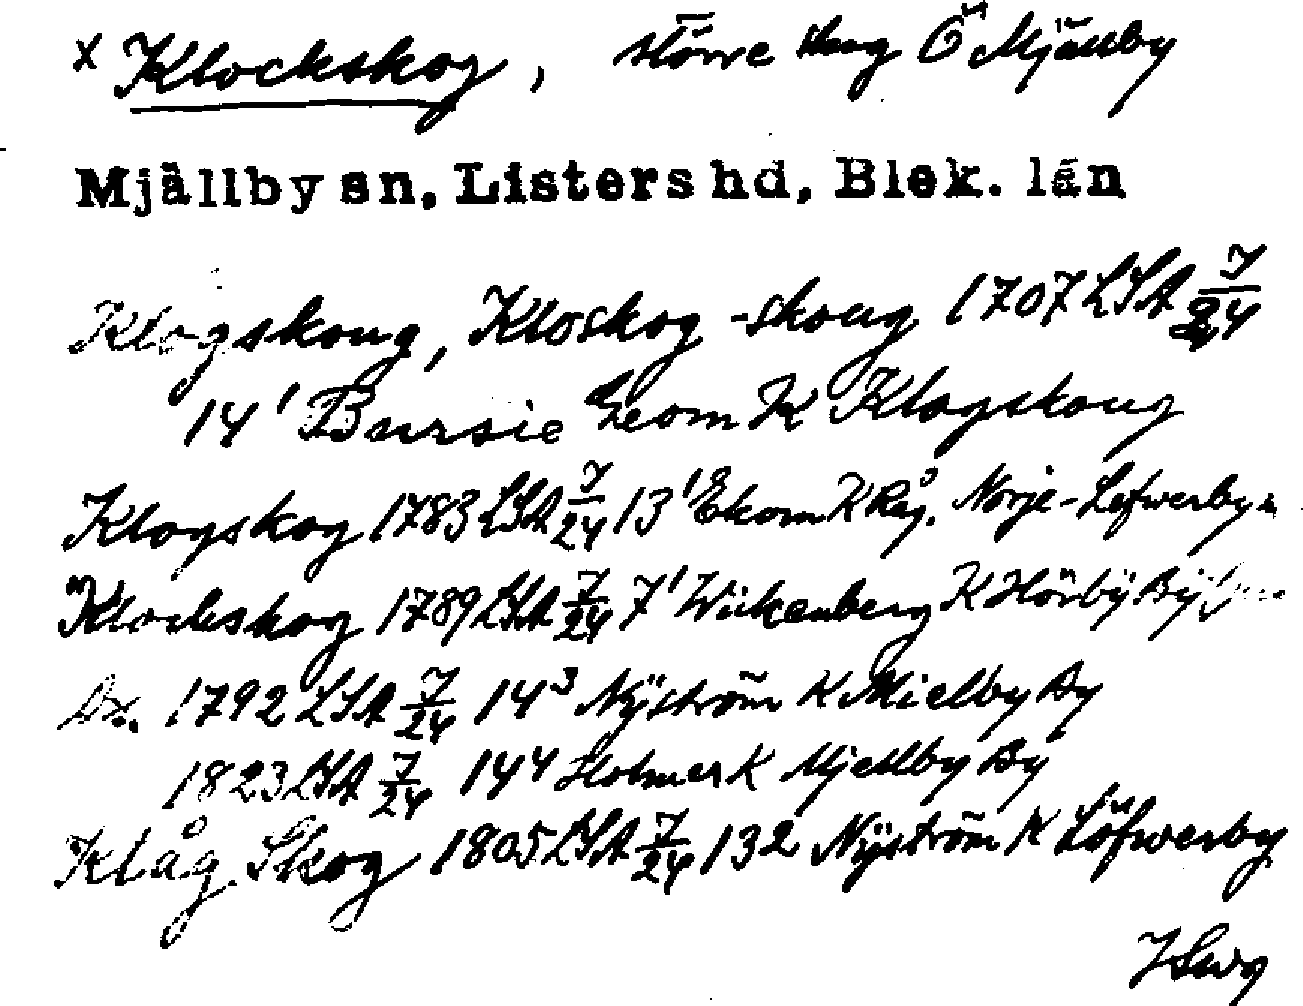 x Klockskog, större skog Ö Mjällby
Mjällby sn, Listers hd, Blek. län
Klogskoug, Kloskog -skoug 1707 LSA 7/24
14¹ Bursie Geom K Klogskoug
Klogskog 1783 LSA 7/24 13¹ Ekom K Räg. Norje-Lefwerby
Klockskog 1789 LSA 7/24 7¹ Wickenberg K Hörby By
Do. 1792 LSA 7/24 14³ Nÿström K Mielby By
1823 LSA 7/24 144 Holmer K Mjellby By
Klåg Skog 1805 LSA 7/24 132 Nÿström K Löfwerby